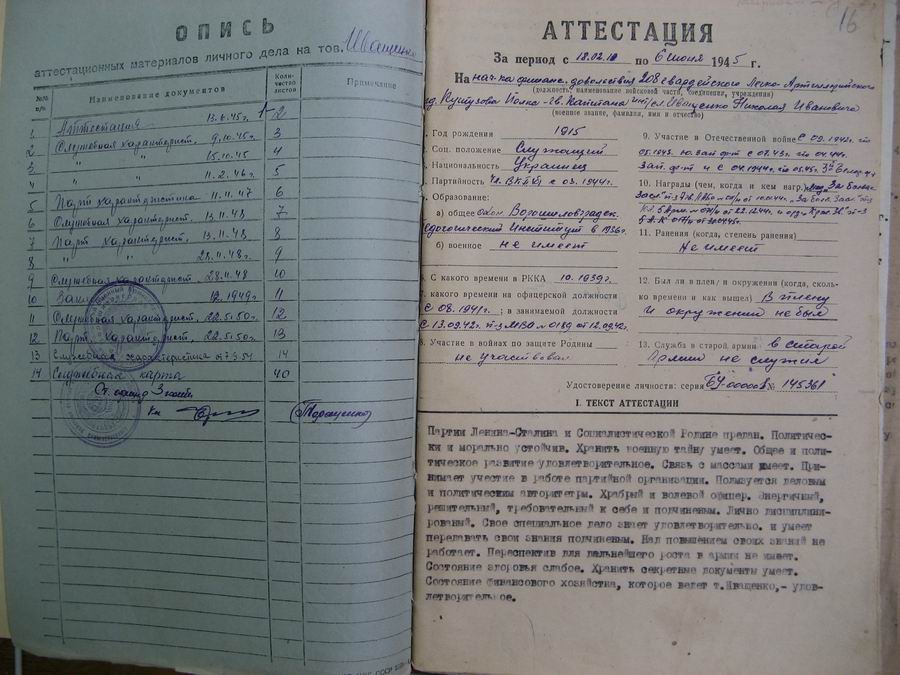 ОПИСЬ
аттестационных материалов личного дела на тов. Иващенко
№№ п/п
Наименование документов
Количество листов
Примечание
1 Аттестация 13.6.45г. 1-2
2 Служебная характерист. 9.10.45г. 3
3 " " 15.10.45 4
4 " " 11.2.46г. 5
5 Парт характеристика 11.11.47 6
6 Служебная характерист. 13.11.48 7
7 Парт характерист. 13.11.48 8
8 " " 28.11.48г. 9
9 Служебная характерист. 28.11.48 10
10 12.1949г. 11
11 Служебная характерист. 22.5.50г. 12
12 Парт. характерист. 22.5.50г. 13
13 Служебная характеристика от 7.9.54 14
14 Служебная карта 40
16
АТТЕСТАЦИЯ
За период с 18.02. по 6 июня 1945 г.
На нач-ка финанс. довольствия 208 гвардейского Легко-Артиллерийского
(должность, наименование войсковой части, соединения, учреждения)
Кутузова Полка - гв. Капитана инт/сл Иващенко Николая Ивановича
(воинское звание, фамилия, имя и отчество)
Год рождения 1915
Соц. положение Служащий
Национальность Украинец
Партийность Чл. ВКП(б) с 03.1944г.
Образование:
а) общее окон Ворошиловградск.
Педагогический Институт в 1936г.
б) военное не имеет
6. С какого времени в РККА 10.1939г.
7. С какого времени на офицерской должности
с 08.1941г.; в занимаемой должности
с 13.09.42г. п-з МВО № 0189 от 12.09.42г.
8. Участие в войнах по защите Родины
не участвовал
9. Участие в Отечественной войне с 09.1942г. по
05.1943. Юз. фр-т с 07.43г. по 04.44г.
Зап. фр-т и с 04.1944г. по 05.45г. 3й Белор.
10. Награды (чем, когда и кем нагр.) мед. „За Боевые
11. Ранения (когда, степень ранения)
Не имеет
12. Был ли в плену и окружении (когда, сколько времени и как вышел) В плену
и окружении не был
13. Служба в старой армии в старой
Армии не служил
Удостоверение личности: серия БУ-000008 № 145361
I. ТЕКСТ АТТЕСТАЦИИ
Партии Ленина-Сталина и Социалистической Родине предан. Политичес-
ки и морально устойчив. Хранить военную тайну умеет. Общее и поли-
тическое развитие удовлетворительное. Связь с массами имеет. При-
нимает участие в работе партийной организации. Пользуется деловым
и политическим авторитетом. Храбрый и волевой офицер. Энергичный,
решительный, требовательный к себе и подчиненым. Лично дисциплини-
рованый. Свое специальное дело знает удовлетворительно. и умеет
передавать свои знания подчиненым. Над повышением своих знаний не
работает. Переспектив для дальнейшего роста в армии не имеет.
Состояние здоровья слабое. Хранить секретные документы умеет.
Состояние финансового хозяйства, которое ведет т.Иващенко,- удов-
летворительное.